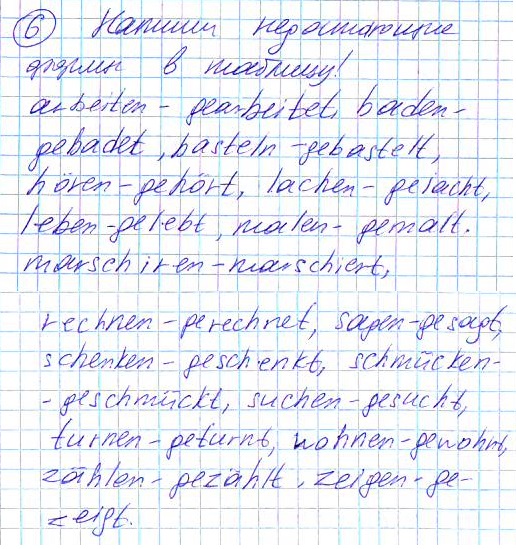 6 Напиши недостающие
формы в таблицу!
arbeiten - gearbeitet, baden -
gebadet, basteln - gebastelt,
hören - gehört, lachen - gelacht,
leben - gelebt, malen - gemalt.
marschiren - marschiert,
rechnen - gerechnet, sagen - gesagt,
schenken - geschenkt, schmücken -
- geschmückt, suchen - gesucht,
turnen - geturnt, wohnen - gewohnt,
zählen - gezählt, zeigen - ge-
zeigt.